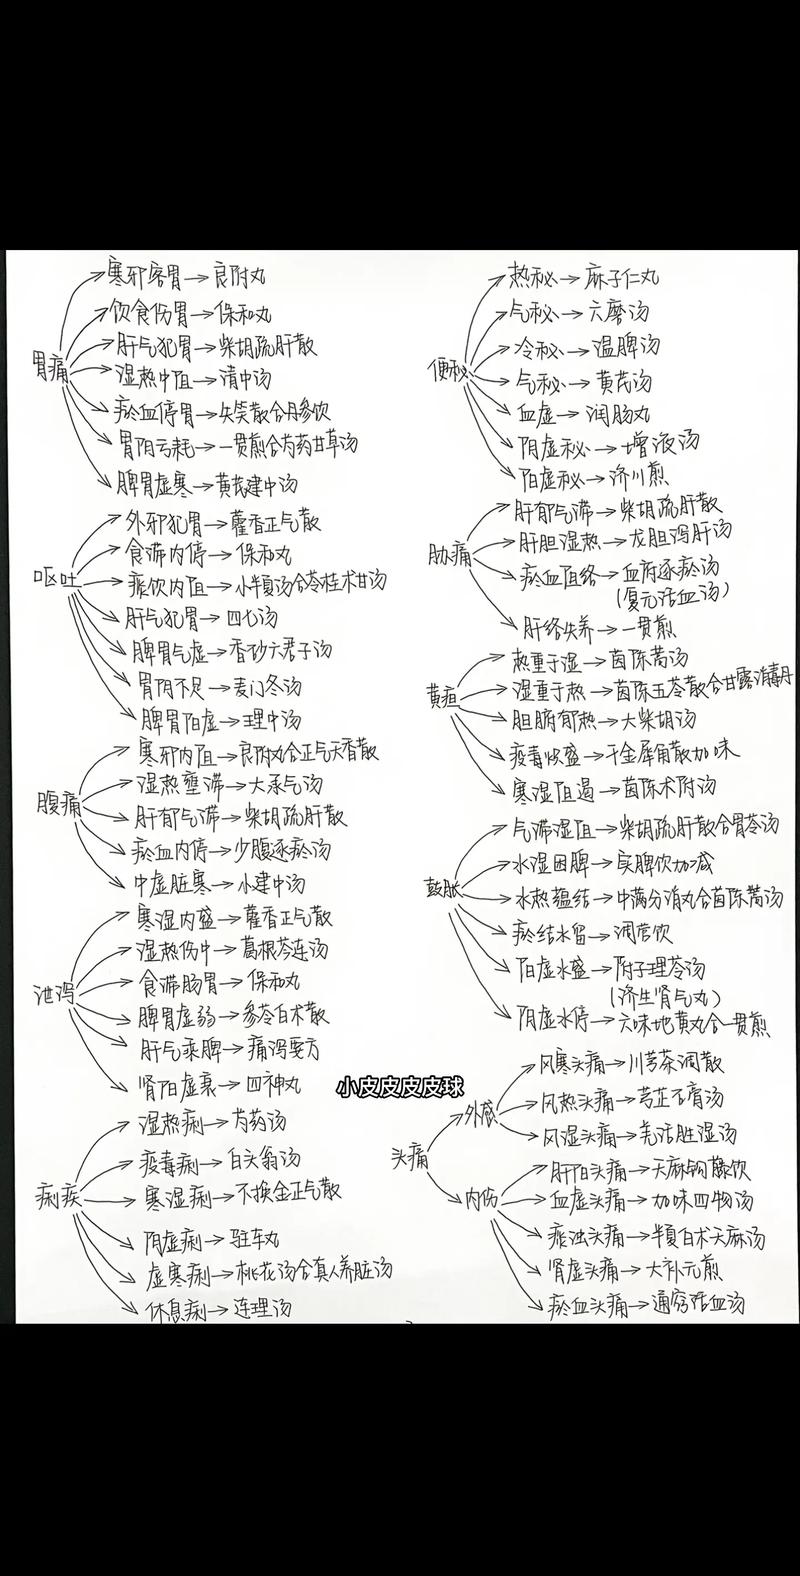 胃痛
寒邪客胃→良附丸
饮食伤胃→保和丸
肝气犯胃→柴胡疏肝散
湿热中阻→清中汤
瘀血停胃→失笑散合丹参饮
胃阴亏耗→一贯煎合芍药甘草汤
脾胃虚寒→黄芪建中汤
呕吐
外邪犯胃→藿香正气散
食滞内停→保和丸
痰饮内阻→小半夏汤合苓桂术甘汤
肝气犯胃→四七汤
脾胃气虚→香砂六君子汤
胃阴不足→麦门冬汤
脾胃阳虚→理中汤
腹痛
寒邪内阻→良附丸合正气天香散
湿热壅滞→大承气汤
肝郁气滞→柴胡疏肝散
瘀血内停→少腹逐瘀汤
中虚脏寒→小建中汤
泄泻
寒湿内盛→藿香正气散
湿热伤中→葛根芩连汤
食滞肠胃→保和丸
脾胃虚弱→参苓白术散
肝气乘脾→痛泻要方
肾阳虚衰→四神丸
痢疾
湿热痢→芍药汤
疫毒痢→白头翁汤
寒湿痢→不换金正气散
阴虚痢→驻车丸
虚寒痢→桃花汤合真人养脏汤
休息痢→连理汤
便秘
热秘→麻子仁丸
气秘→六磨汤
冷秘→温脾汤
气秘→黄芪汤
血虚→润肠丸
阴虚秘→增液汤
阳虚秘→济川煎
胁痛
肝郁气滞→柴胡疏肝散
肝胆湿热→龙胆泻肝汤
瘀血阻络→血府逐瘀汤
(复元活血汤)
肝络失养→一贯煎
黄疸
热重于湿→茵陈蒿汤
湿重于热→茵陈五苓散合甘露消毒丹
胆腑郁热→大柴胡汤
疫毒炽盛→千金犀角散加味
寒湿阻遏→茵陈术附汤
鼓胀
气滞湿阻→柴胡疏肝散合胃苓汤
水湿困脾→实脾饮加减
水热蕴结→中满分消丸合茵陈蒿汤
瘀结水留→调营饮
阳虚水盛→附子理苓汤
(济生肾气丸)
阴虚水停→六味地黄丸合一贯煎
头痛
外感
风寒头痛→川芎茶调散
风热头痛→芎芷石膏汤
风湿头痛→羌活胜湿汤
内伤
肝阳头痛→天麻钩藤饮
血虚头痛→加味四物汤
痰浊头痛→半夏白术天麻汤
肾虚头痛→大补元煎
瘀血头痛→通窍活血汤
小皮皮皮皮球